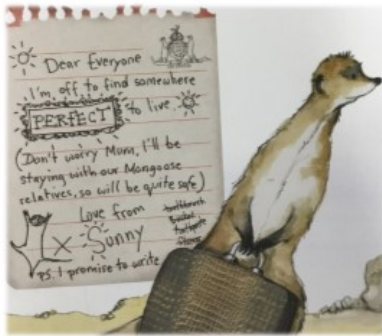 Dear Everyone
I'm off to find somewhere
PERFECT to live.
(Don't worry Mum, I'll be
staying with our Mongoose
relatives, so will be quite safe)
Love from
x Sunny
ps. I promise to write